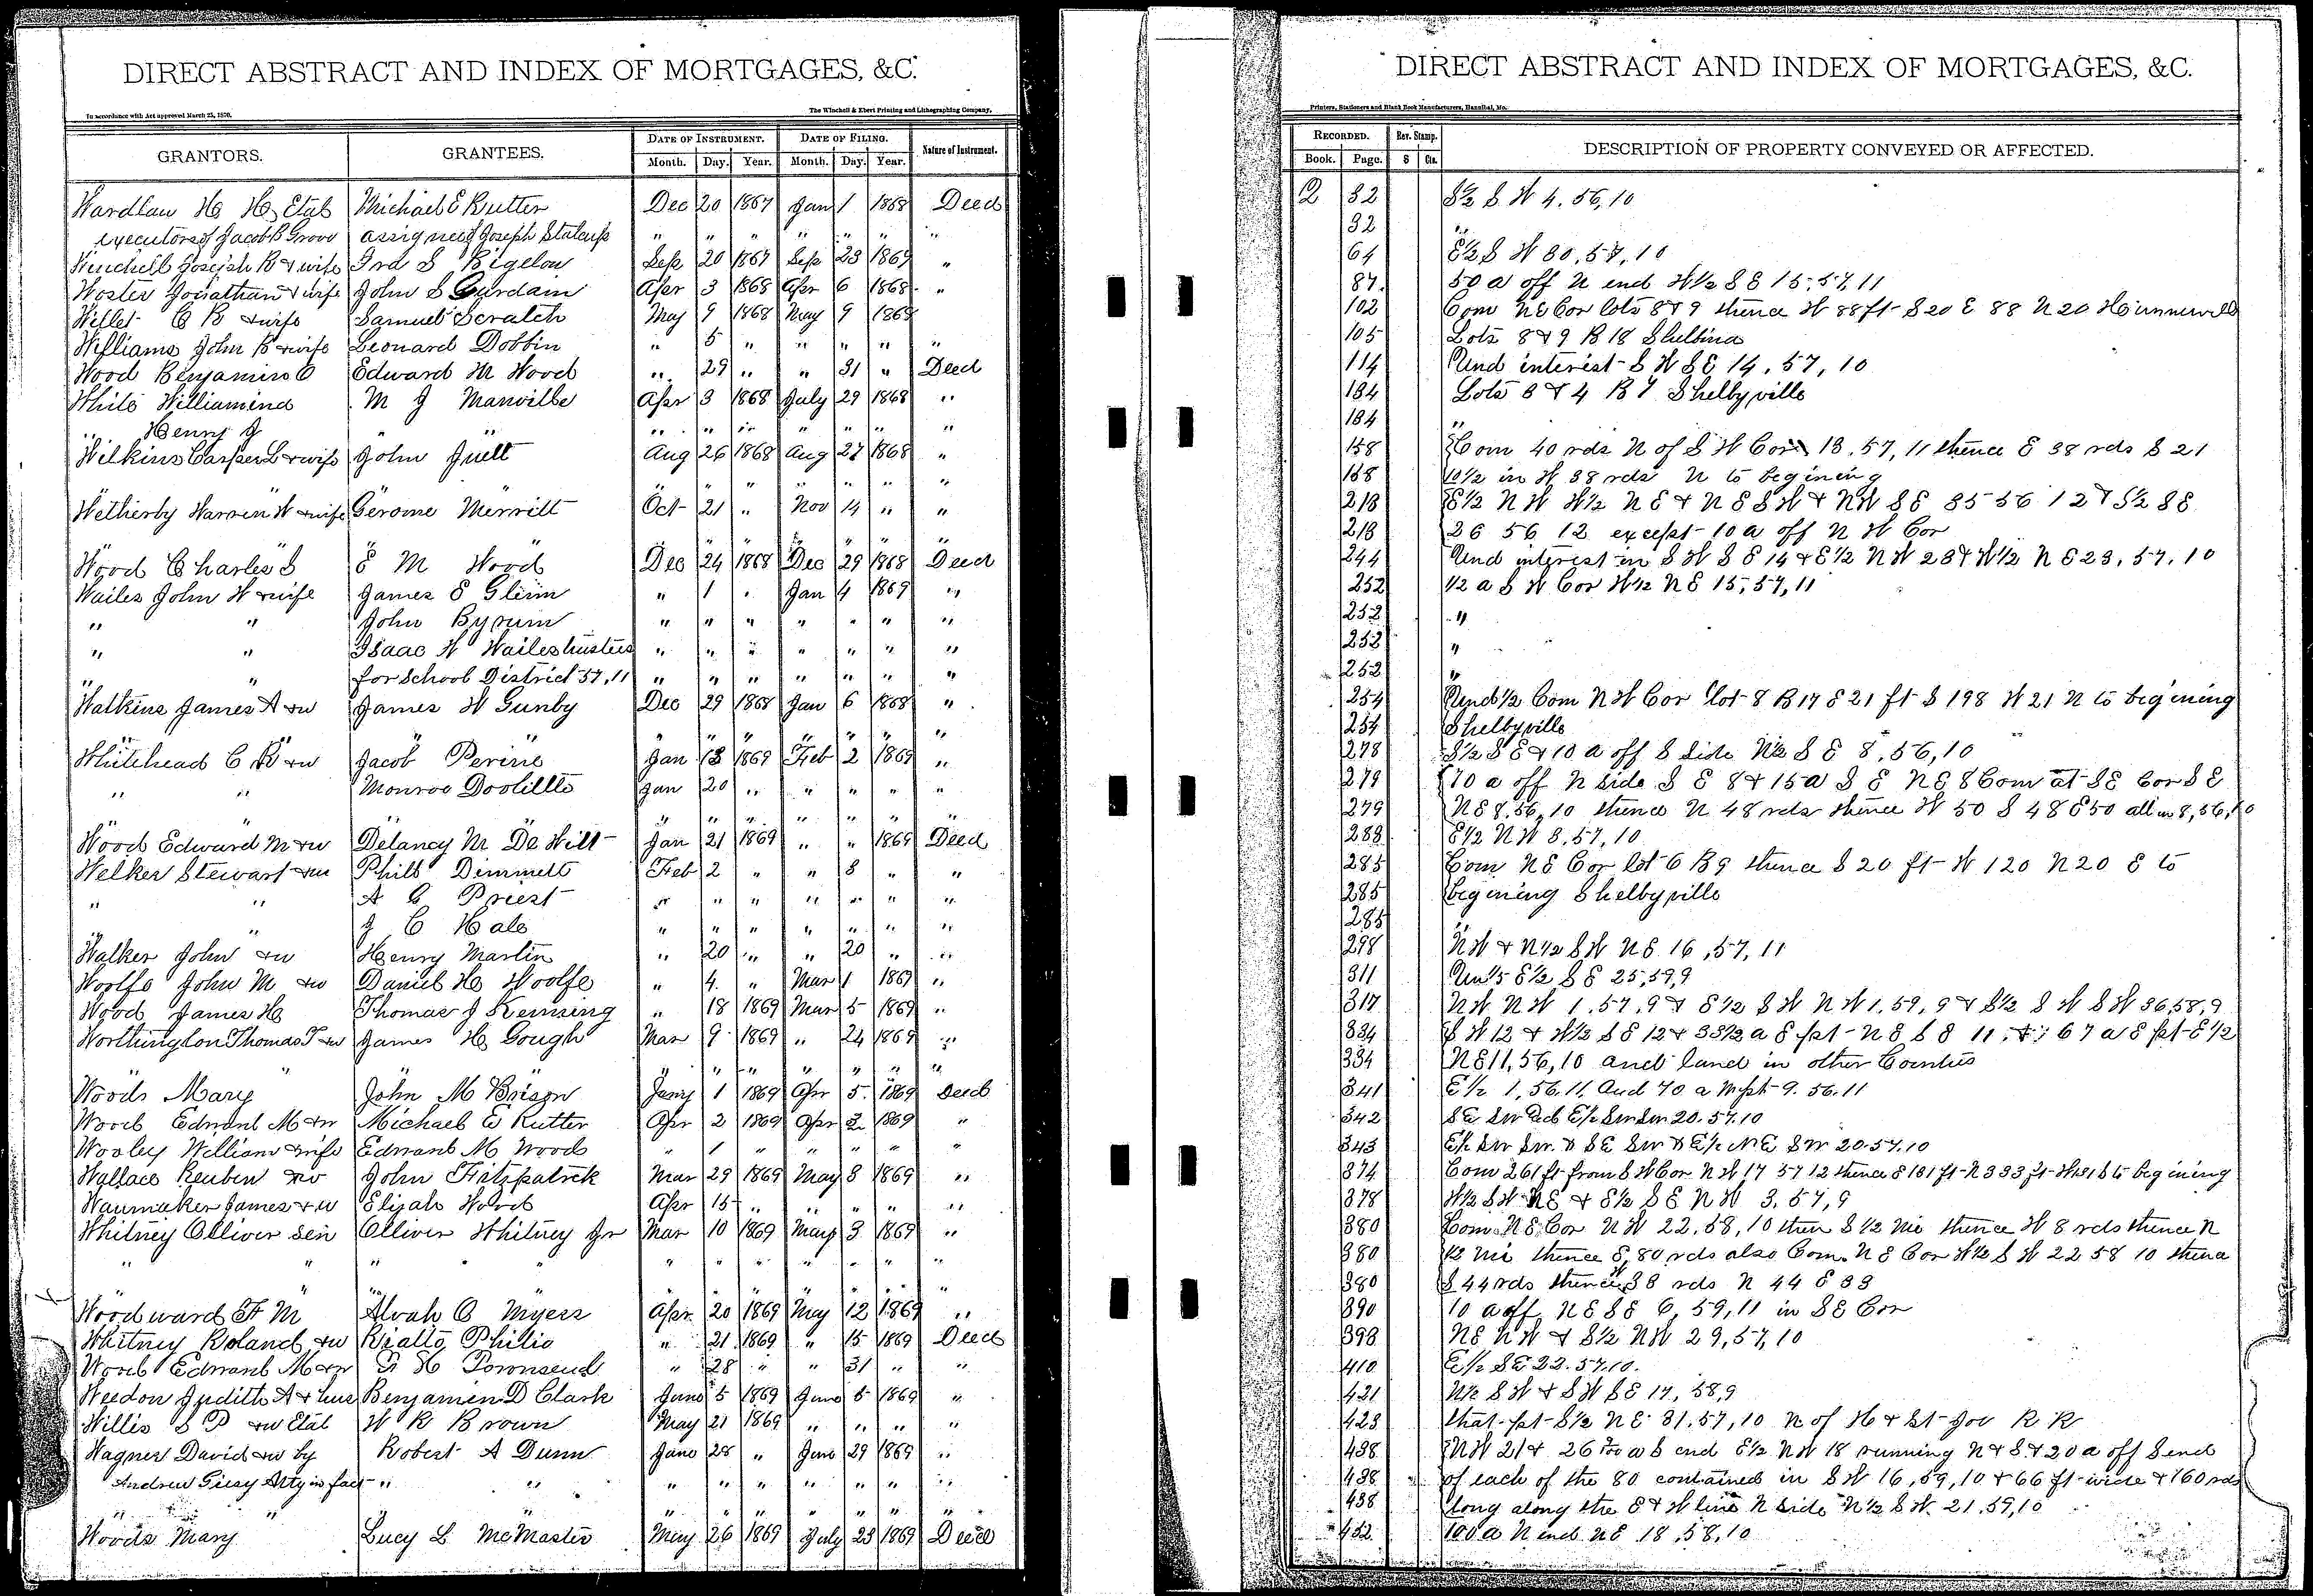 DIRECT ABSTRACT AND INDEX OF MORTGAGES, &C.
In accordance with Act approved March 25, 1870.
The Winchell & Ebert Printing and Lithographing Company,
GRANTORS. GRANTEES. DATE OF INSTRUMENT. DATE OF FILING. Nature of Instrument.
Month. Day. Year. Month. Day. Year.
Wardlaw H H, Etal Michael E Rutter Dec 20 1867 Jan 1 1868 Deed
executors of Jacob B Grove assignee of Joseph " " " " " " "
Winchell Joseph B & wife Ira S Bigelow Sep 20 1867 Sep 23 1869 "
Woster Jonathan & wife John S Apr 3 1868 Apr 6 1868 "
Willet C B & wife Samuel Scratch May 9 1868 May 9 1868
Williams John B & wife Leonard Dobbin " 5 " " " " "
Wood Benjamin C Edward M Wood " 29 " " 31 " Deed
White M J Manville Apr 3 1868 July 29 1868 "
" Henry J " " " " " " " "
Wilkins Casper L & wife John Juett Aug 26 1868 Aug 27 1868 "
" " " " " " " " "
Wetherby Warren W & wife Gerome Merritt Oct 21 " Nov 14 " "
" " " " " " " " "
Wood Charles S E M Wood Dec 24 1868 Dec 29 1868 Deed
Wailes John W & wife James E Glenn " 1 " Jan 4 1869 "
" " John Byrum " " " " " " "
" " Isaac W Wailes trustees " " " " " " "
" " for School District 57, 11 " " " " " " "
Watkins James A & w James W Gunby Dec 29 1868 Jan 6 1868 "
" " " " " " " " "
Whitehead C R & w Jacob Perine Jan 13 1869 Feb 2 1869 "
" " Monroe Doolittle Jan 20 " " " " "
" " " " " " " " "
Wood Edward M & w Delancy M De Witt Jan 21 1869 " " 1869 Deed
Welker Stewart & w Philo Dimmett Feb 2 " " 8 " "
" " A G Priest " " " " " " "
" " J C Hale " " " " " " "
Walker John & w Henry Martin " 20 " " 20 " "
Woolfe John M & w Daniel H Woolfe " 4 " Mar 1 1869 "
Wood James H Thomas J Keming " 18 1869 Mar 5 1869 "
Worthington Thomas T & w James H Gough Mar 9 1869 " 24 1869 "
" " " " " " " "
Woods Mary John M Brison Jany 1 1869 Apr 5 1869 Deed
Wood Edward M & w Michael E Rutter Apr 2 1869 Apr 2 1869 "
Wooley William & wife Edward M Wood " 1 " " " " "
Wallace Reuben & w John Fitzpatrick Mar 29 1869 May 8 1869 "
Waumaker James & w Elijah Wood Apr 15 " " " " "
Whitney Olliver Sen Olliver Whitney Jr Mar 10 1869 May 3 1869 "
" " " " " " " " " " "
" " " " " " " " "
Woodward F M Alvah C Myers Apr 20 1869 May 12 1869 "
Whitney Roland & w Rialto Philio " 21 1869 " 15 1869 Deed
Wood Edward M & w Townsend " 28 " " 31 " "
Weedon Judith A & hus Benjamin D Clark June 5 1869 June 5 1869 "
Willis S P & w Etal W R Brown May 21 1869 " " " "
Wagner David & w by Robert A Dunn June 28 " June 29 1869 "
Andrew Atty in fact " " " " " " " " "
" " " " " " " " " "
Woods Mary Lucy L McMaster May 26 1869 July 23 1869 Deed
DIRECT ABSTRACT AND INDEX OF MORTGAGES, &C.
Printers, Stationers and Blank Book Manufacturers, Hannibal, Mo.
RECORDED. Rev. Stamp. DESCRIPTION OF PROPERTY CONVEYED OR AFFECTED.
Book. Page. $ Cts.
2 32 S½ S W 4, 56, 10
32 "
64 E½ S W 30, 57, 10
87 50 a off N end W½ S E 15, 57, 11
102 Com N E Cor lots 8 & 9 thence W 88 ft S 20 E 88 N 20 Hunnewell
105 Lots 8 & 9 B 18 Shelbina
114 Und interest S W S E 14, 57, 10
134 Lots 3 & 4 B 7 Shelbyville
134 "
158 Com 40 rds N of S W Cor 13, 57, 11 thence E 38 rds S 21
158 10½ in W 38 rds N to begining
218 E½ N W W½ N E & N E S W & N W S E 35 56 12 & S½ S E
218 26 56 12 except 10 a off N W Cor
244 Und interest in S W S E 14 & E½ N W 23 & W½ N E 23, 57, 10
252 ½ a S W Cor W½ N E 15, 57, 11
252 "
252 "
252 "
254 Und ½ Com N W Cor lot 8 B 17 E 21 ft S 198 W 21 N to begining
254 Shelbyville
278 S½ S E & 10 a off S side N½ S E 8, 56, 10
279 70 a off N side S E 8 & 15 a S E N E 8 Com at S E Cor S E
279 N E 8, 56, 10 thence N 48 rds thence W 50 S 48 E 50 all in 8, 56, 10
283 E½ N W 3, 57, 10
285 Com N E Cor lot 6 B 9 thence S 20 ft W 120 N 20 E to
285 begining Shelbyville
285 "
298 N W & N½ S W N E 16, 57, 11
311 Un 1/5 E½ S E 25, 59, 9
317 N W N W 1, 57, 9 & E½ S W N W 1, 59, 9 & S½ S W S W 36, 58, 9
334 S W 12 & W½ S E 12 & 33½ a E pt N E S E 11 & 67 a E pt E½
334 N E 11, 56, 10 and land in other Counties
341 E½ 1, 56, 11, And 70 a W pt 9. 56. 11
342 S E Sw And E½ Sw Sw 20. 57. 10
343 E½ Sw Sw & S E Sw & E½ N E Sw 20. 57. 10
374 Com 261 ft from S W Cor N W 17 57 12 thence E 131 ft N 333 ft W 131 S to begining
378 W½ S W N E & E½ S E N W 3, 57, 9
380 Com N E Cor N W 22, 58, 10 then S ½ mi thence W 8 rds thence N
380 ½ mi thence E 80 rds also Com N E Cor W½ S W 22 58 10 thence
380 S 44 rds thence W 38 rds N 44 E 38
390 10 a off N E S E 6, 59, 11 in S E Cor
393 N E N W & S½ N W 29, 57, 10
410 E½ S E 22. 57. 10.
421 N½ S W & S W S E 17, 58, 9
423 that pt S½ N E 31, 57, 10 N of H & St Joe R R
438 N W 21 & 26 a S end E½ N W 18 running N & S & 20 a off S end
438 of each of the 80 contained in S W 16, 59, 10 & 66 ft wide & 160 rds
438 long along the E & W line N side N½ S W 21, 59, 10
452 100 a N end N E 18, 58, 10